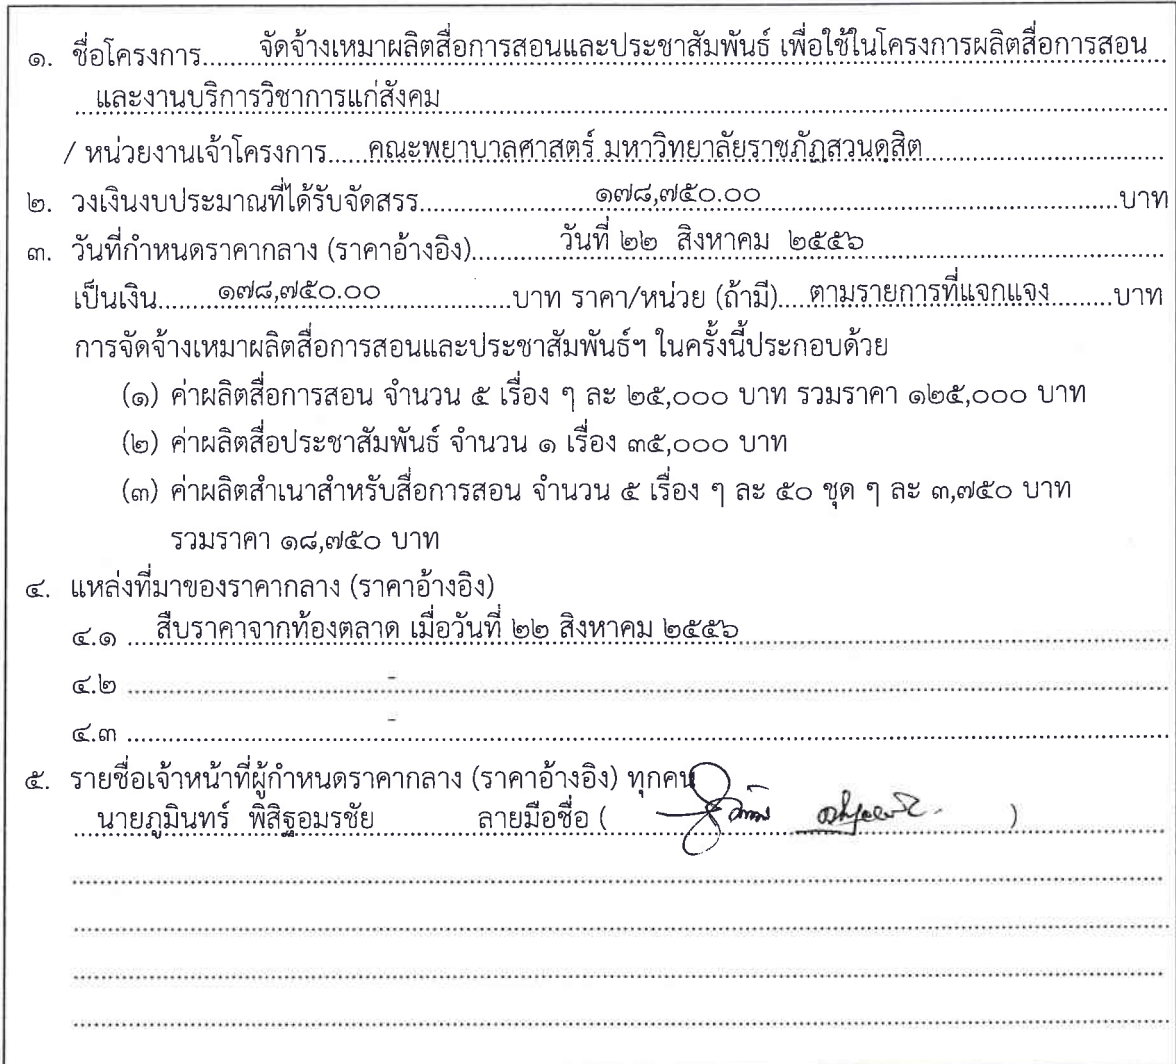 ๑. ชื่อโครงการ.........จัดจ้างเหมาผลิตสื่อการสอนและประชาสัมพันธ์ เพื่อใช้ในโครงการผลิตสื่อการสอน
และงานบริการวิชาการแก่สังคม
/ หน่วยงานเจ้าโครงการ.....คณะพยาบาลศาสตร์ มหาวิทยาลัยราชภัฏสวนดุสิต
๒. วงเงินงบประมาณที่ได้รับจัดสรร..........๑๗๘,๗๕๐.๐๐..........บาท
๓. วันที่กำหนดราคากลาง (ราคาอ้างอิง)..........วันที่ ๒๒ สิงหาคม ๒๕๕๖
เป็นเงิน.........๑๗๘,๗๕๐.๐๐..........บาท ราคา/หน่วย (ถ้ามี)....ตามรายการที่แจกแจง.......บาท
การจัดจ้างเหมาผลิตสื่อการสอนและประชาสัมพันธ์ฯ ในครั้งนี้ประกอบด้วย
(๑) ค่าผลิตสื่อการสอน จำนวน ๕ เรื่อง ๆ ละ ๒๕,๐๐๐ บาท รวมราคา ๑๒๕,๐๐๐ บาท
(๒) ค่าผลิตสื่อประชาสัมพันธ์ จำนวน ๑ เรื่อง ๓๕,๐๐๐ บาท
(๓) ค่าผลิตสำเนาสำหรับสื่อการสอน จำนวน ๕ เรื่อง ๆ ละ ๕๐ ชุด ๆ ละ ๓,๗๕๐ บาท
รวมราคา ๑๘,๗๕๐ บาท
๔. แหล่งที่มาของราคากลาง (ราคาอ้างอิง)
๔.๑ ....สืบราคาจากท้องตลาด เมื่อวันที่ ๒๒ สิงหาคม ๒๕๕๖
๔.๒ ..........-..........
๔.๓ ..........-..........
๕. รายชื่อเจ้าหน้าที่ผู้กำหนดราคากลาง (ราคาอ้างอิง) ทุกคน
นายภูมินทร์ พิสิฐอมรชัย ลายมือชื่อ ( )